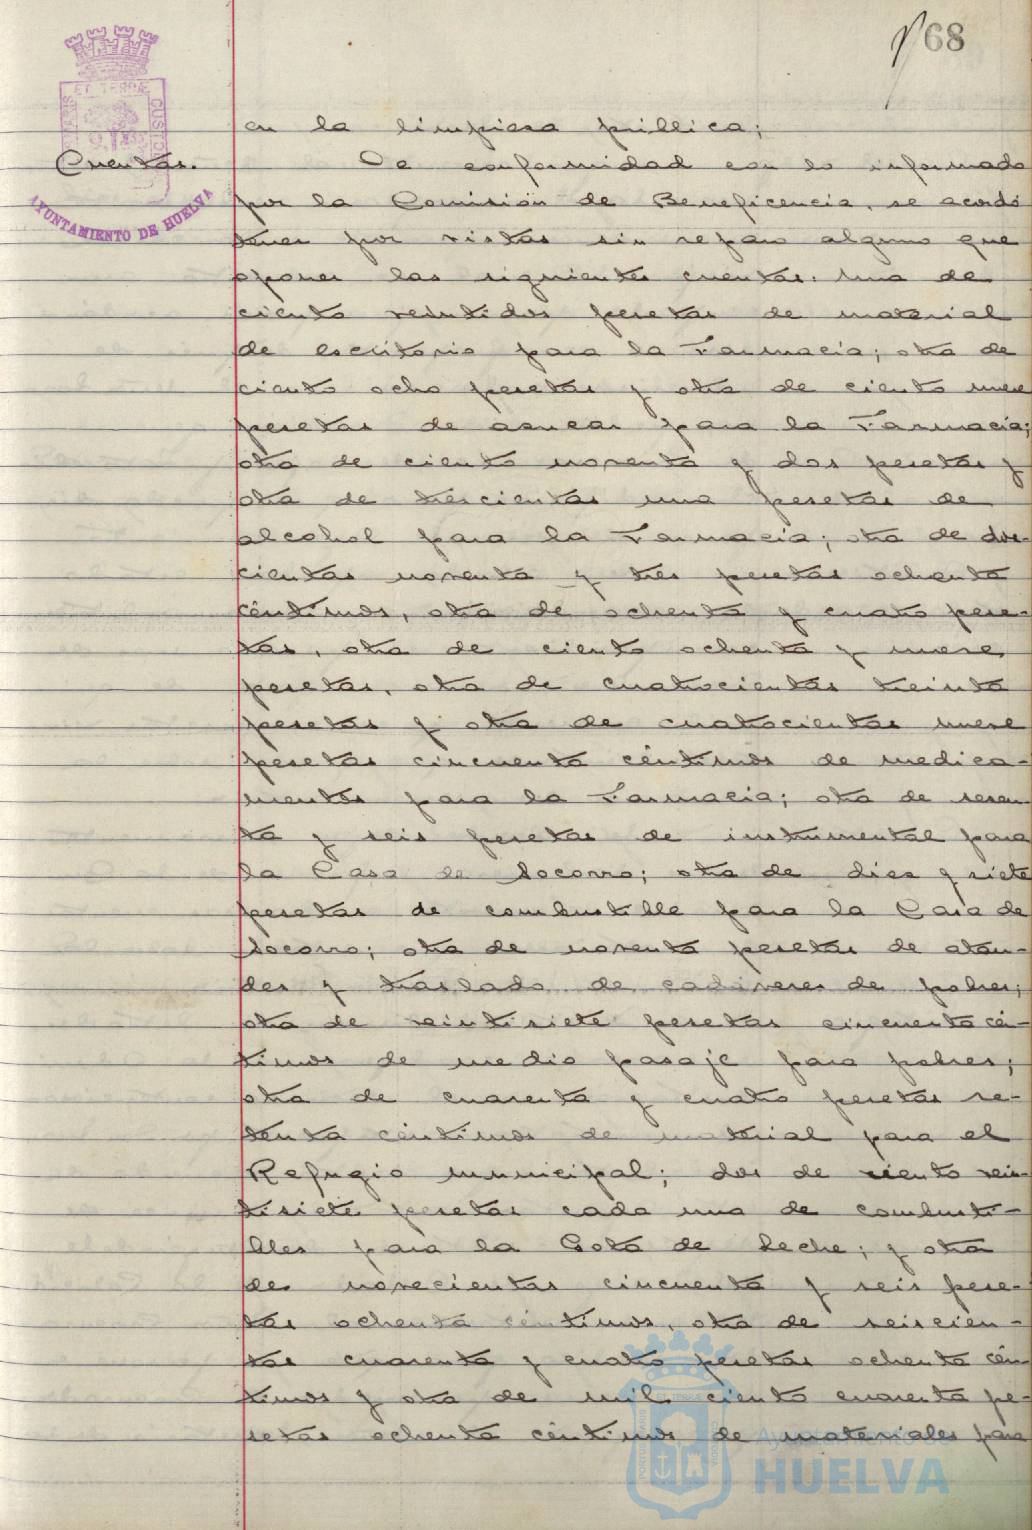 68
en la limpieza pública;
Cuentas.
De conformidad con lo informado
por la Comisión de Beneficencia, se acordó
tener por vistas sin reparo alguno que
oponer las siguientes cuentas: una de
ciento veintidos pesetas de material
de escritorio para la Farmacia; otra de
ciento ocho pesetas y otra de ciento nueve
pesetas de azucar para la Farmacia;
otra de ciento noventa y dos pesetas y
otra de trescientas una pesetas de
alcohol para la Farmacia; otra de dos-
cientas noventa y tres pesetas ochenta
céntimos, otra de ochenta y cuatro pese-
tas, otra de ciento ochenta y nueve
pesetas, otra de cuatrocientas treinta
pesetas y otra de cuatrocientas nueve
pesetas cincuenta céntimos de medica-
mentos para la Farmacia; otra de sesen-
ta y seis pesetas de instrumental para
la Casa de Socorro; otra de diez y siete
pesetas de combustible para la Casa de
Socorro; otra de noventa pesetas de ataú-
des y traslado de cadáveres de pobres;
otra de veintisiete pesetas cincuenta cén-
timos de medio pasaje para pobres;
otra de cuarenta y cuatro pesetas se-
tenta céntimos de material para el
Refugio municipal; dos de ciento vein-
tisiete pesetas cada una de combusti-
bles para la Gota de Leche; y otra
de novecientas cincuenta y seis pese-
tas ochenta céntimos, otra de seiscien-
tas cuarenta y cuatro pesetas ochenta cén-
timos y otra de mil ciento cuarenta pe-
setas ochenta céntimos de materiales para
AYUNTAMIENTO DE HUELVA
Ayuntamiento de
HUELVA